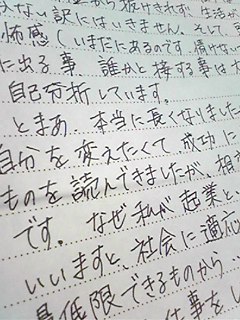 抜けきれず、生活が
ない訳にはいきません。そして
怖感(いまだにあるのです。情けない
に出る事 誰かと接する事は
自己分析しています。
とまあ、本当に長くなりました
自分を変えたくて成功に
ものを読んできましたが、相
です。 なぜ私が起業と、
いいますと、社会に適応
最低限できるものから
仕事をし